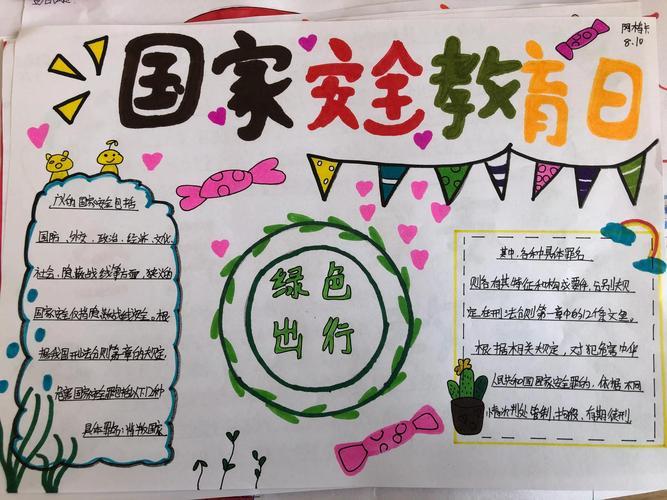 国家安全教育日
8.10
广义的国家安全包括
国防、外交、政治、经济、文化、
社会、隐蔽战线等方面，狭义的
国家安全仅指隐蔽战线安全。根
据我国刑法分则第一章的规定，
危害国家安全罪包括以下12种
具体罪名：背叛国家
绿色
出行
其中，各种具体罪名
则各有其特征和构成要件，分别大规
定在刑法分则第一章中的12条文里。
根据相关规定，对犯危害中华
人民共和国国家安全罪的，依据不同
情况判处管制、拘役、有期徒刑